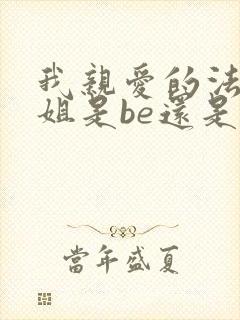 我親愛的法
姐是be還是
當年盛夏